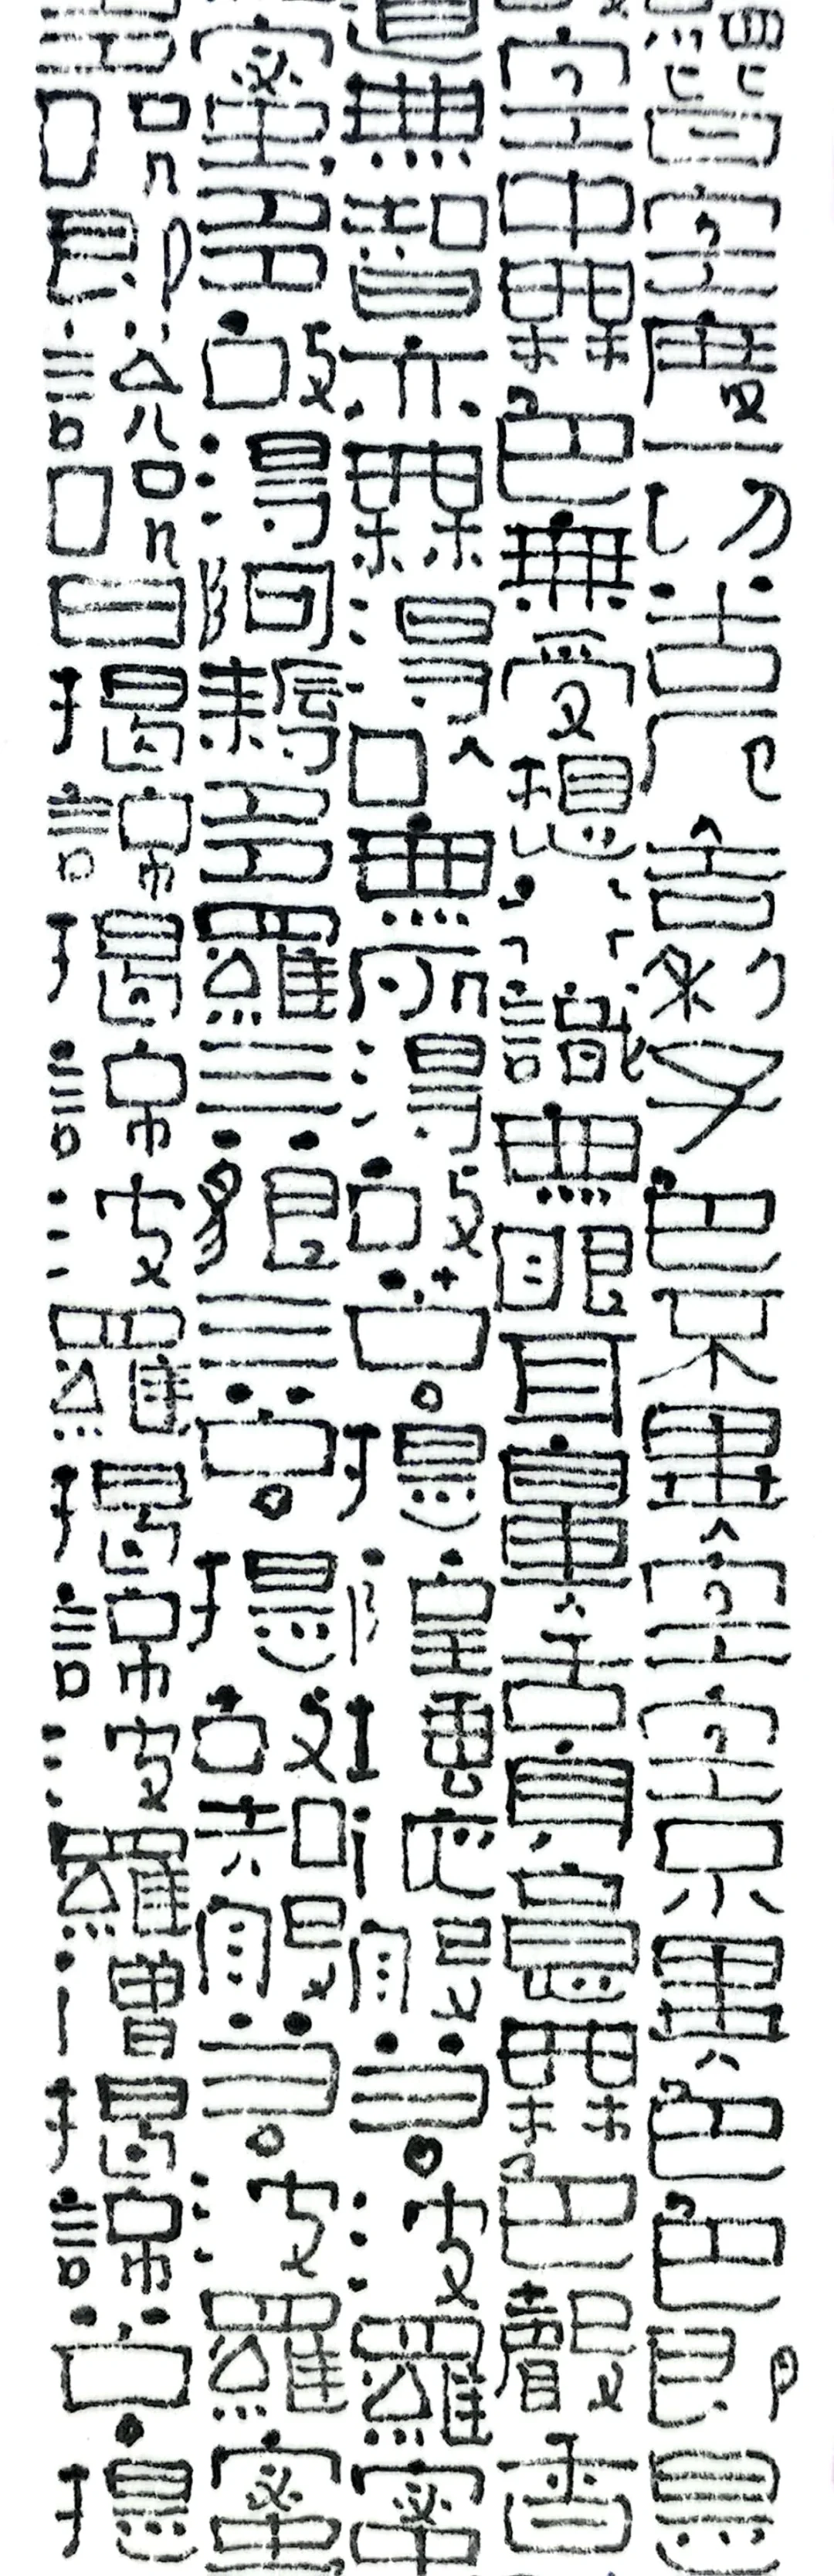 皆空度一切苦厄舍利子色不異空空不異色色即是
空中無色無受想行識無眼耳鼻舌身意無色聲香
道無智亦無得以無所得故菩提薩埵依般若波羅蜜
蜜多故得阿耨多羅三藐三菩提故知般若波羅蜜
咒即說咒曰揭諦揭諦波羅揭諦波羅僧揭諦菩提